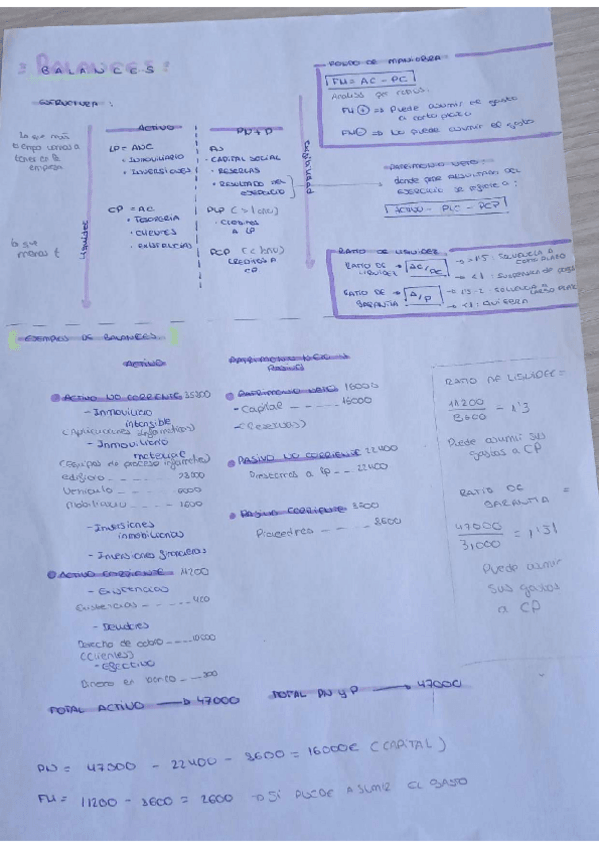 BALANCES:
ESTRUCTURA:
Lo que más
tiempo vamos a
tener en la
empresa
lo que
menos t
LIQUIDEZ
ACTIVO
LP = ANC
• INMOVILIARIO
• INVERSIONES
CP = AC
• TESORERIA
• CLIENTES
• EXISTENCIAS
PN + P
PN
- CAPITAL SOCIAL
• RESERVAS
• RESULTADO DEL
EJERCICIO
PLP (> 1 año)
- CREDITOS
A LP
PCP (< 1 año)
CREDITOS A
CP
EXIGILIDAD
FONDO DE MANIOBRA
FM = AC - PC
Analisis por ratios:
FM + => Puede asumir el gasto
a corto plazo
FM - => No puede asumir el gasto
PATRIMONIO NETO:
donde pone RESULTADO DEL
EJERCICIO se refiere a:
ACTIVO - PLC - PCP
RATIO DE LIQUIDEZ
RATIO DE LIQUIDEZ → AC/PC
→ >1'5: SOLVENCIA A
CORTO PLAZO
→ <1: SUSPENSIÓN de pagos
RATIO DE GARANTIA → A/P
→ 1'5-2: SOLVENCIA A
LARGO PLAZO
→ <1: QUIEBRA
EJEMPLOS DE BALANCES
ACTIVO
ACTIVO NO CORRIENTE 35800
- Inmoviliario
intangible
(Aplicaciones informaticas)
- Inmoviliario
material
(equipos de proceso informaticos)
edificio - - - 28000
Vehiculo - - - 6000
Mobiliario - - - 1800
- Inversiones
inmobiliarias
- Inversiones financieras
ACTIVO CORRIENTE 11200
- Existencias
Existencias - - - - 400
- Deudores
Derecho de cobro - - - 10500
(Clientes)
- Efectivo
Dinero en banco - - 300
TOTAL ACTIVO → 47000
PATRIMONIO NETO Y
PASIVO
PATRIMONIO NETO 16000
- Capital - - - - - 16000
- (Reservas)
PASIVO NO CORRIENTE 22400
Prestamos a lp - - - 22400
PASIVO CORRIENTE 8600
Proveedores - - - - 8600
TOTAL PN y P → 47000
RATIO DE LIQUIDEZ =
11200
8600
= 1'3
Puede asumir sus
gastos a CP
RATIO DE
GARANTIA =
47000
31000
= 1'51
Puede asumir
sus gastos
a CP
PN = 47000 - 22400 - 8600 = 16000€ (CAPITAL)
FM = 11200 - 8600 = 2600 → SI PUEDE ASUMIR EL GASTO